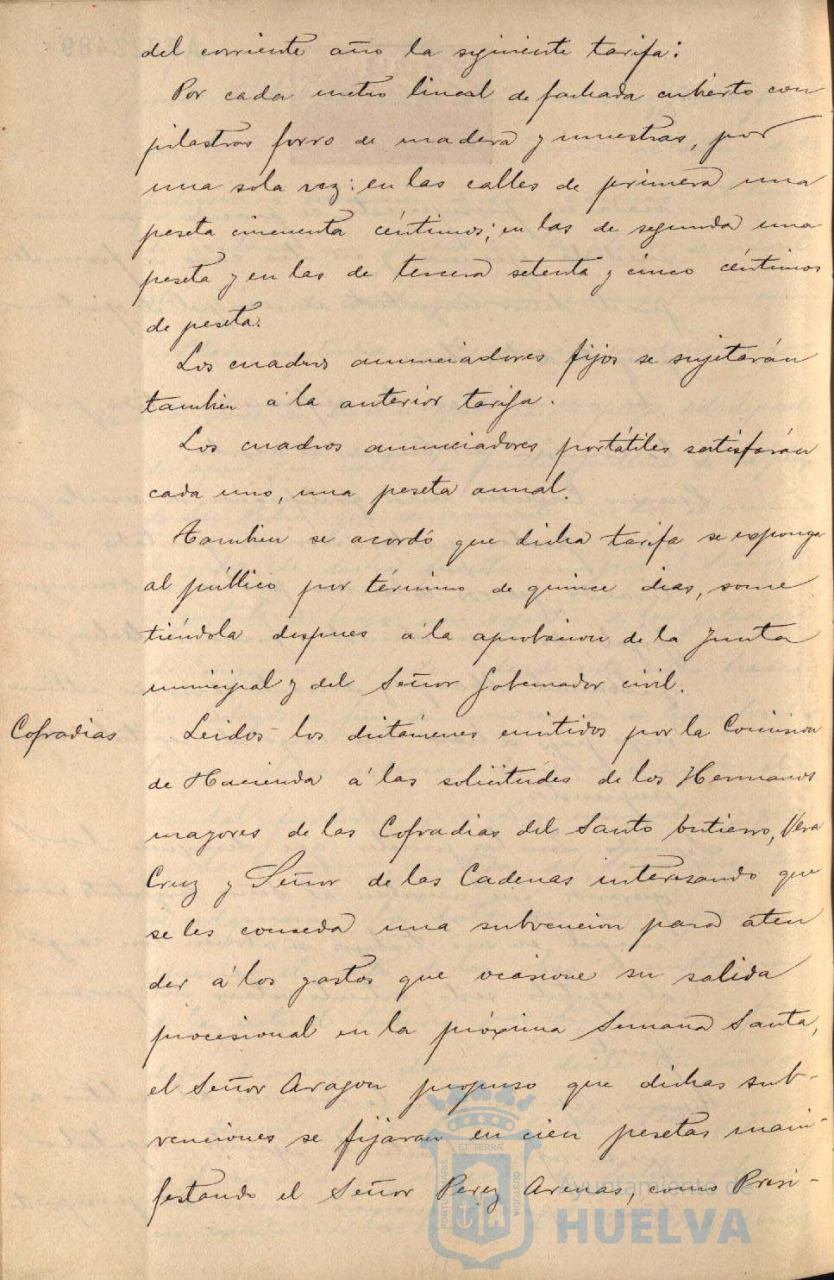 del corriente año la siguiente tarifa:
Por cada metro lineal de fachada cubierto con
pilastras forro de madera y muestras, por
una sola vez: en las calles de primera una
peseta cincuenta céntimos; en las de segunda una
peseta y en las de tercera setenta y cinco céntimos
de peseta.
Los cuadros anunciadores fijos se sujetarán
tambien á la anterior tarifa.
Los cuadros anunciadores portátiles satisfarán
cada uno, una peseta anual.
Tambien se acordó que dicha tarifa se exponga
al público por término de quince dias, some
tiéndola despues á la aprobacion de la Junta
municipal y del Señor Gobernador civil.
Cofradias
Leidos los dictámenes emitidos por la Comision
de Hacienda á las solicitudes de los Hermanos
mayores de las Cofradias del Santo Entierro, Vera
Cruz y Señor de las Cadenas interesando que
se les conceda una subvencion para aten
der á los gastos que ocasione su salida
procesional en la próxima Semana Santa,
el Señor Aragon propuso que dichas sub-
venciones se fijaran en cien pesetas mani-
festando el Señor Perez Arenas, como Presi-
Ayuntamiento de
HUELVA